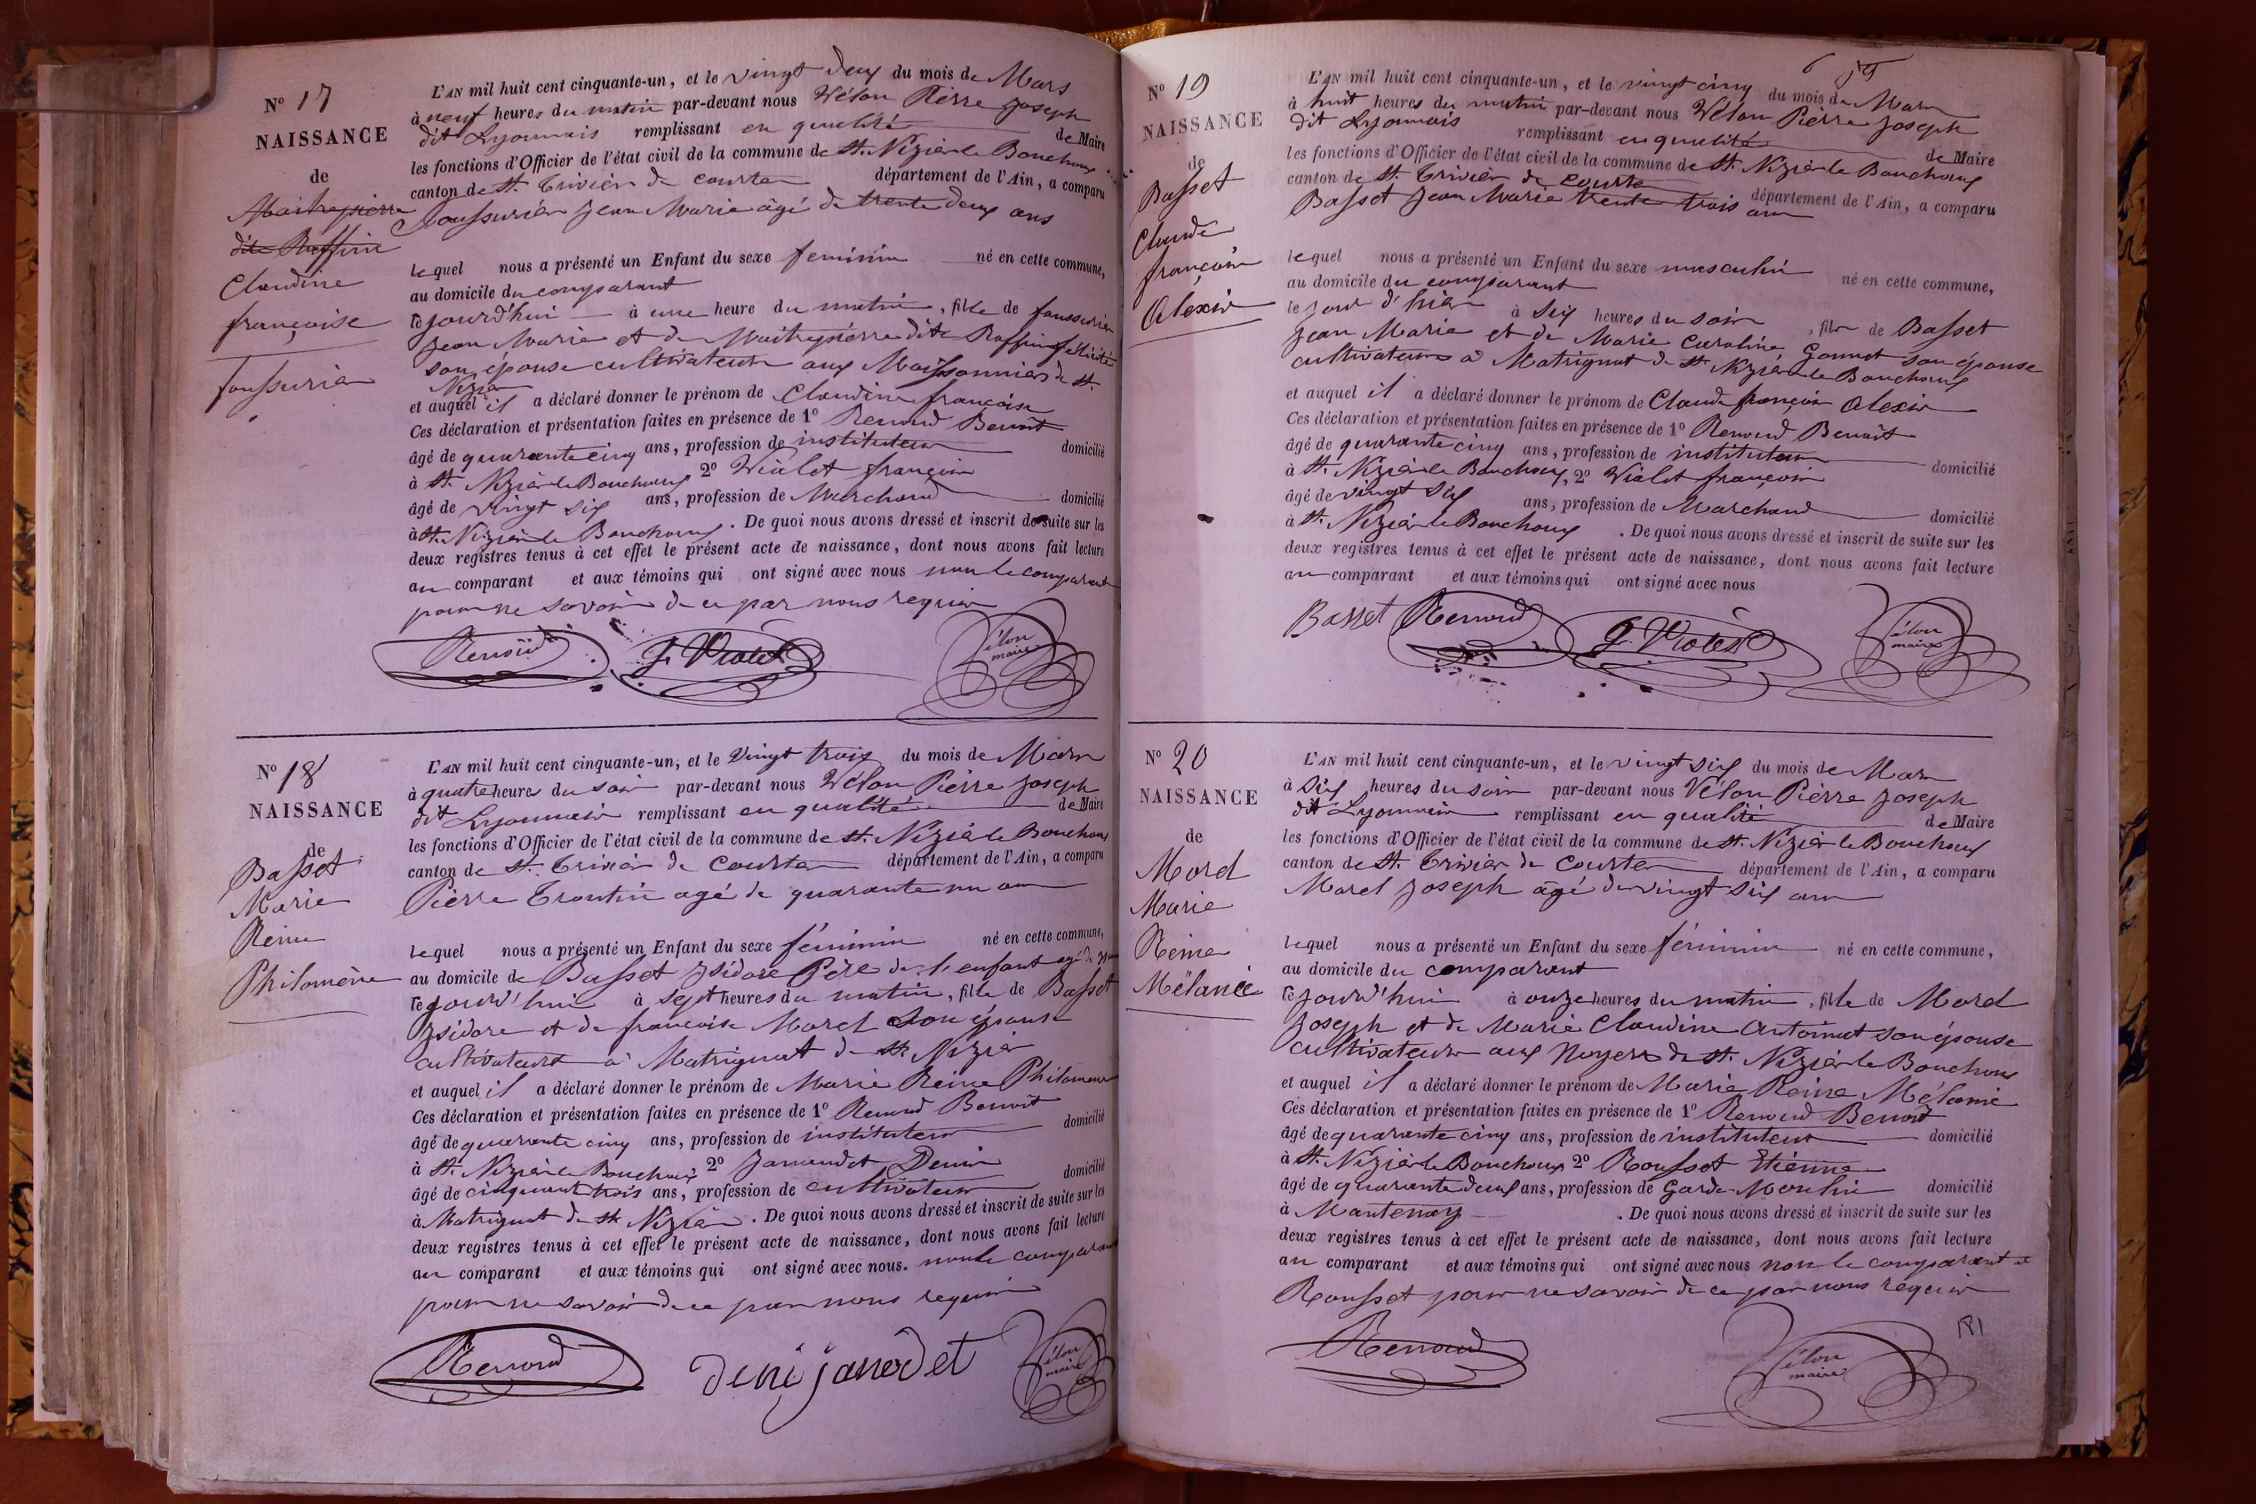 N° 17
NAISSANCE
de
Maitrepierre
dite Ruffin
Claudine
françoise
foussurier
L'AN mil huit cent cinquante-un, et le vingt deux du mois de Mars
à neuf heures du matin par-devant nous Vélon Pierre Joseph
dit Lyonnais remplissant en qualité de Maire
les fonctions d'Officier de l'état civil de la commune de St. Nizier le Bouchoux
canton de St. Trivier de Courtes département de l'Ain, a comparu
foussurier Jean Marie âgé de trente deux ans
lequel nous a présenté un Enfant du sexe feminin né en cette commune,
au domicile du comparant
ce jourd'hui à une heure du matin, fille de foussurier
Jean Marie et de Maitrepierre dite Ruffin
son épouse cultivateurs aux de St.
Nizier
et auquel il a déclaré donner le prénom de Claudine françoise
Ces déclaration et présentation faites en présence de 1° Renoud Benoit
âgé de quarante cinq ans, profession de instituteur domicilié
à St. Nizier le Bouchoux 2° Violet françois
âgé de vingt six ans, profession de Marchand domicilié
à St. Nizier le Bouchoux. De quoi nous avons dressé et inscrit de suite sur les
deux registres tenus à cet effet le présent acte de naissance, dont nous avons fait lecture
au comparant et aux témoins qui ont signé avec nous non le comparant
pour ne savoir de ce par nous requis
Renoud f. Violet Vélon
maire
N° 18
NAISSANCE
de
Basset
Marie
Reine
Philomène
L'AN mil huit cent cinquante-un, et le vingt trois du mois de Mars
à quatre heures du soir par-devant nous Vélon Pierre Joseph
dit Lyonnais remplissant en qualité de Maire
les fonctions d'Officier de l'état civil de la commune de St. Nizier le Bouchoux
canton de St. Trivier de Courtes département de l'Ain, a comparu
Pierre Trontin agé de quarante un ans
lequel nous a présenté un Enfant du sexe féminin né en cette commune,
au domicile de Basset Isidore Père de l'enfant agé de
ce jourd'hui à sept heures du matin, fille de Basset
Isidore et de françoise Morel son épouse
cultivateurs à Matrignat de St. Nizier
et auquel il a déclaré donner le prénom de Marie Reine Philomène
Ces déclaration et présentation faites en présence de 1° Renoud Benoit
âgé de quarante cinq ans, profession de instituteur domicilié
à St. Nizier le Bouchoux 2° Janaudet Denis
âgé de cinquante trois ans, profession de cultivateur domicilié
à Matrignat de St. Nizier. De quoi nous avons dressé et inscrit de suite sur les
deux registres tenus à cet effet le présent acte de naissance, dont nous avons fait lecture
au comparant et aux témoins qui ont signé avec nous. non le comparant
pour ne savoir de ce par nous requis
Renoud deni janodet Vélon
maire
N° 19
NAISSANCE
de
Basset
Claude
françois
Alexis
6
L'AN mil huit cent cinquante-un, et le vingt cinq du mois de Mars
à huit heures du matin par-devant nous Vélon Pierre Joseph
dit Lyonnais remplissant en qualité de Maire
les fonctions d'Officier de l'état civil de la commune de St. Nizier le Bouchoux
canton de St. Trivier de Courtes département de l'Ain, a comparu
Basset Jean Marie trente trois ans
lequel nous a présenté un Enfant du sexe masculin né en cette commune,
au domicile du comparant
le jour d'hier à six heures du soir, fils de Basset
Jean Marie et de Marie Caroline Gonnet son épouse
cultivateurs à Matrignat de St. Nizier le Bouchoux
et auquel il a déclaré donner le prénom de Claude françois Alexis
Ces déclaration et présentation faites en présence de 1° Renoud Benoit
âgé de quarante cinq ans, profession de instituteur domicilié
à St. Nizier le Bouchoux, 2° Violet françois
âgé de vingt six ans, profession de Marchand domicilié
à St. Nizier le Bouchoux. De quoi nous avons dressé et inscrit de suite sur les
deux registres tenus à cet effet le présent acte de naissance, dont nous avons fait lecture
au comparant et aux témoins qui ont signé avec nous
Basset Renoud f. Violet Vélon
maire
N° 20
NAISSANCE
de
Morel
Marie
Reine
Mélanie
L'AN mil huit cent cinquante-un, et le vingt six du mois de Mars
à six heures du soir par-devant nous Vélon Pierre Joseph
dit Lyonnais remplissant en qualité de Maire
les fonctions d'Officier de l'état civil de la commune de St. Nizier le Bouchoux
canton de St. Trivier de Courtes département de l'Ain, a comparu
Morel Joseph âgé de vingt six ans
lequel nous a présenté un Enfant du sexe féminin né en cette commune,
au domicile du comparant
ce jourd'hui à onze heures du matin, fille de Morel
Joseph et de Marie Claudine Antoinat son épouse
cultivateurs aux Noyers de St. Nizier le Bouchoux
et auquel il a déclaré donner le prénom de Marie Reine Mélanie
Ces déclaration et présentation faites en présence de 1° Renoud Benoit
âgé de quarante cinq ans, profession de instituteur domicilié
à St. Nizier le Bouchoux 2° Rousset Etienne
âgé de quarante deux ans, profession de Garde-Moulin domicilié
à Mantenay. De quoi nous avons dressé et inscrit de suite sur les
deux registres tenus à cet effet le présent acte de naissance, dont nous avons fait lecture
au comparant et aux témoins qui ont signé avec nous non le comparant et
Rousset pour ne savoir de ce par nous requis
Renoud Vélon
maire
181